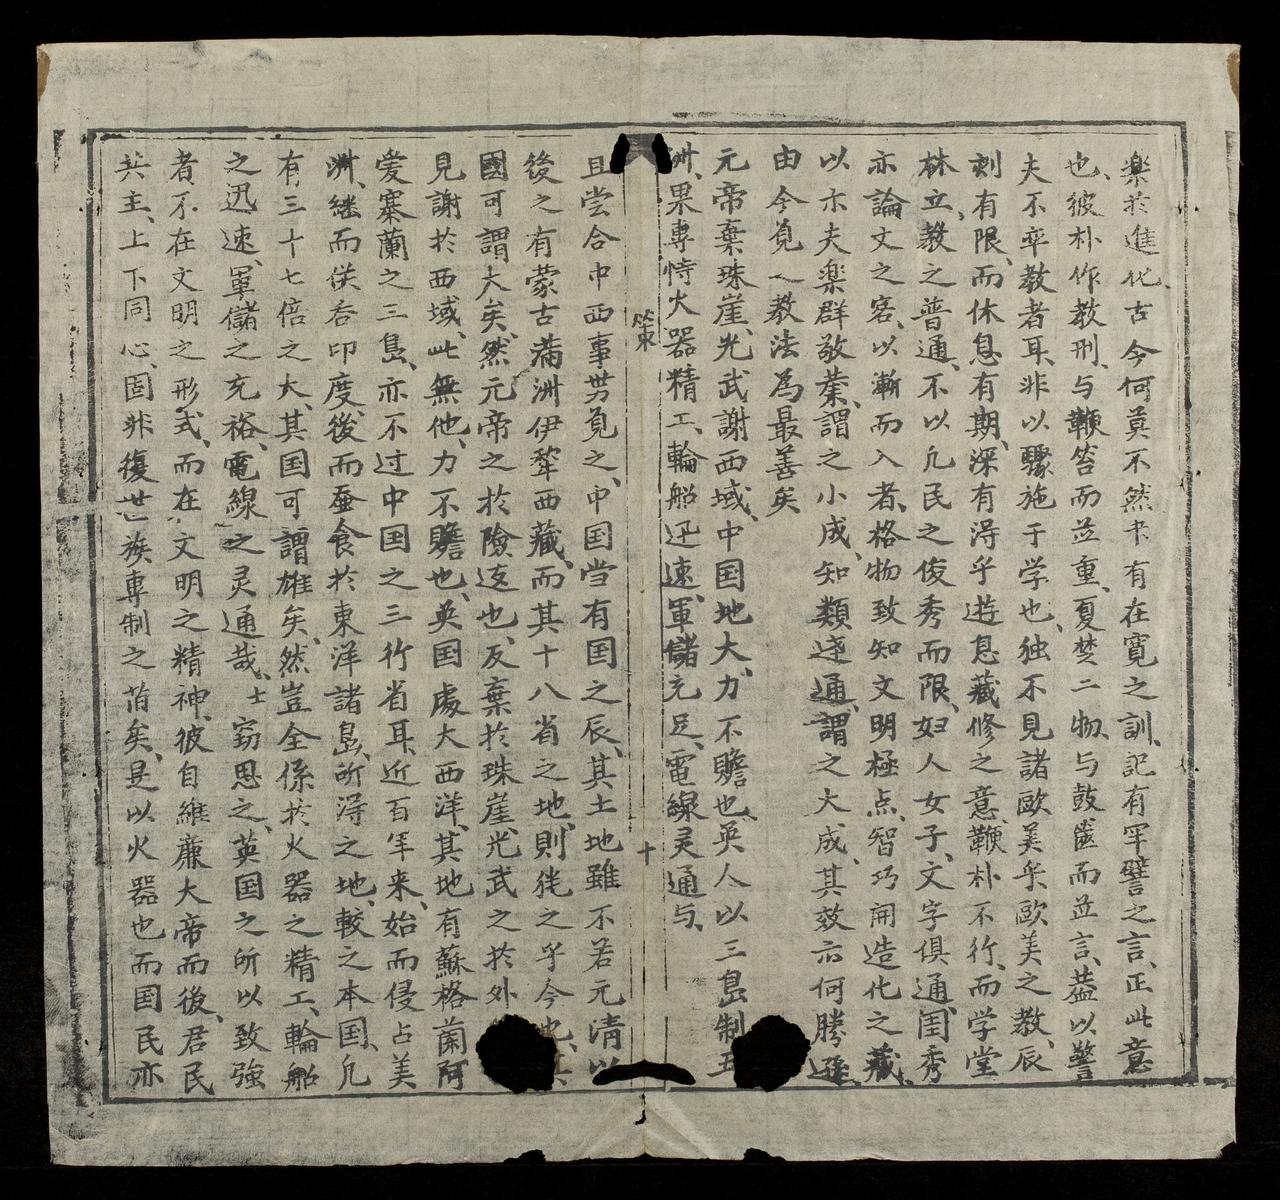 樂於進化、古今何莫不然、書有在寬之訓、記有罕譬之言、正此意
也、彼朴作教刑、与鞭笞而並重、夏楚二物、与鼓篋而並言、蓋以警
夫不率教者耳、非以驟施于学也、独不見諸歐美乎、歐美之教、辰
刻有限、而休息有期、深有淂乎遊息藏修之意、鞭朴不行、而学堂
林立、教之普通、不以凢民之俊秀而限、妇人女子、文字俱通、闺秀
亦論文之客、以漸而入者、格物致知、文明極点、智巧開造化之藏、
以木夫楽群敬業、謂之小成、知類逹通、謂之大成、其效亦何勝遜、
由今覓之教法為最善矣
元帝棄珠崖、光武謝西域、中国地大、力不贍也、英人以三島制五
洲、果專恃大器精工、輪船迅速、軍儲充足、電線灵通与、
十
且嘗合中西事势覓之、中国當有国之辰、其土地雖不若元清以
後之有蒙古滿洲伊犂西藏、而其十八省之地、則猶之乎今也、
國可謂大矣、然元帝之於險逺也、反棄於珠崖、光武之於外
見謝於西域、此無他、力不贍也、英国處大西洋、其地有蘇格蘭阿
爱寨蘭之三島、亦不过中国之三行省耳、近百年来、始而侵占美
洲、継而倂吞印度、後而蚕食於東洋諸島、所淂之地、較之本国、凢
有三十七倍之大、其国可謂雄矣、然豈全係於火器之精工、輪船
之迅速、軍儲之充裕、電線之灵通哉、士窃思之、英国之所以致強
者、不在文明之形式、而在文明之精神、彼自維廉大帝而後、君民
共主、上下同心、固非復世族專制之旧矣、是以火器也而国民亦